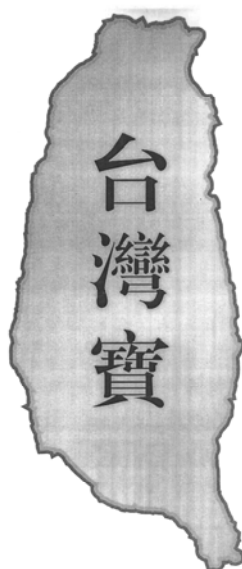 台灣寶